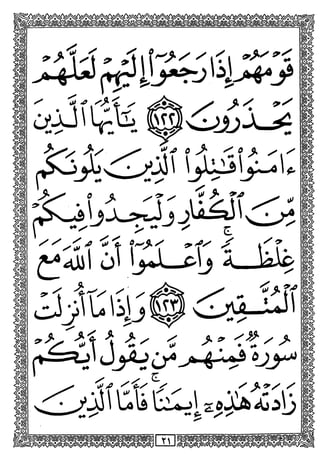 قَوْمَهُمْ إِذَا رَجَعُوٓا۟ إِلَيْهِمْ لَعَلَّهُمْ
يَحْذَرُونَ ١٢٢ يَـٰٓأَيُّهَا ٱلَّذِينَ
ءَامَنُوا۟ قَـٰتِلُوا۟ ٱلَّذِينَ يَلُونَكُم
مِّنَ ٱلْكُفَّارِ وَلْيَجِدُوا۟ فِيكُمْ
غِلْظَةً ۚ وَٱعْلَمُوٓا۟ أَنَّ ٱللَّهَ مَعَ
ٱلْمُتَّقِينَ ١٢٣ وَإِذَا مَآ أُنزِلَتْ
سُورَةٌ فَمِنْهُم مَّن يَقُولُ أَيُّكُمْ
زَادَتْهُ هَـٰذِهِۦٓ إِيمَـٰنًا ۚ فَأَمَّا ٱلَّذِينَ
٢١